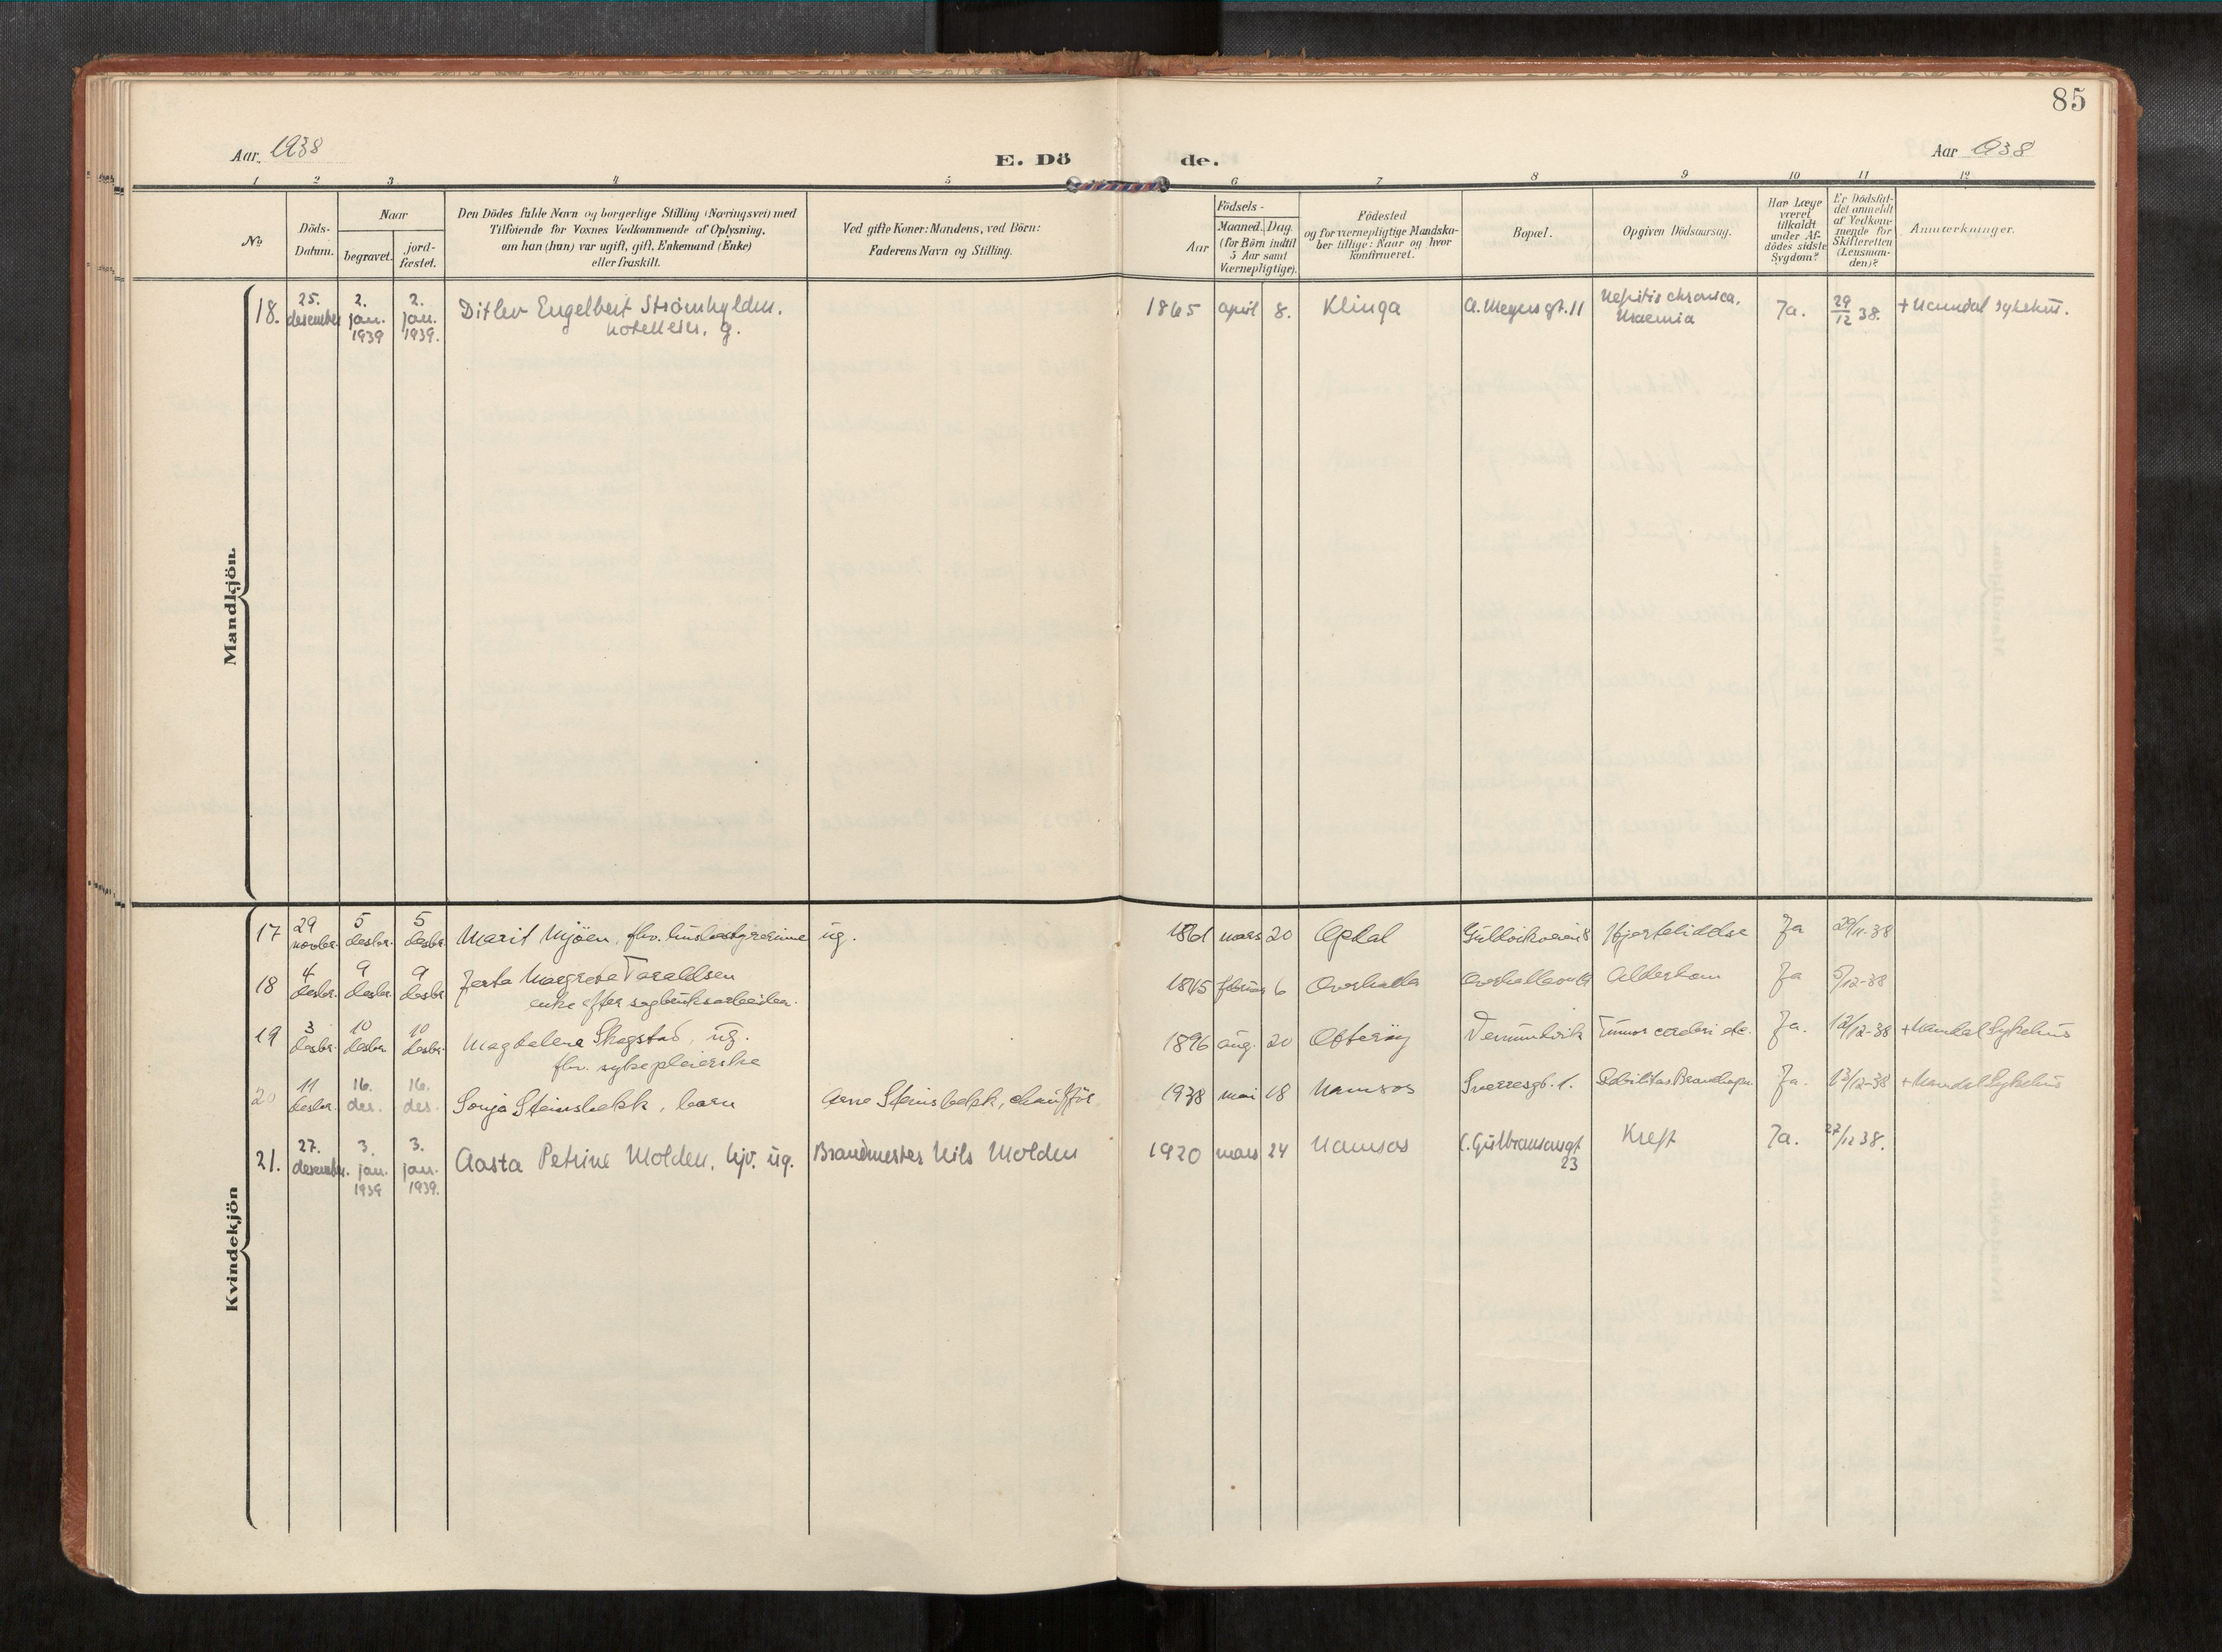 85
Aar. 1938
E. Dö de.
Aar 1938
1 2 3 4 5 6 7 8 9 10 11 12
No
Döds-
Datum.
Naar
begravet.
jord-
fæstet.
Den Dödes fulde Navn og borgerlige Stilling (Næringsvei) med
Tilföiende for Voxnes Vedkommende af Oplysning,
om han (hun) var ugift, gift, Enkemand (Enke)
eller fraskilt.
Ved gifte Koner: Mandens, ved Börn:
Faderens Navn og Stilling.
Födsels-
Aar
Maaned. Dag.
(for Börn indtil
5 Aar samt
Værnepligtige).
Födested
og for værnepligtige Mandska-
ber tillige: Naar og hvor
konfirmeret.
Bopæl.
Opgiven Dödsaarsag.
Har Læge
været
tilkaldt
under Af-
dödes sidste
Sygdom?
Er Dödsfal-
det anmeldt
af Vedkom-
mende for
Skifteretten
(Lensman-
den)?
Anmærkninger.
Mandkjön.
18. 25. desember 2. jan. 1939 2. jan. 1939. Ditlev Engelbert Strömhylden. 1865 april 8. Klinga A. Meyers gt. 11 Nefritis chronica. Ja. 29/12 38. + Namdal sykehus.
hotelleier, g. Uraemia
Kvindekjön
17 29 novbr. 5 desbr. 5 desbr. Marit Mjöen, fhv. husbestyrerinne ug. 1861 mars 20 Opdal Hjertelidelse Ja 29/11-38
18 4 desbr. 9 desbr. 9 desbr. Margrete Taraldsen 1845 februar 6 Overhalla Alderdom Ja 5/12-38
enke efter sagbruksarbeider.
19 3 desbr. 10 desbr 10 desbr. Magdalena Skogstad, ug. 1896 aug. 20 Otteröy Vemundvik Tumor cerebri etc. Ja. 12/12-38 + Namdal Sykehus
fhv. sykepleierske
20 11 desbr. 16. des. 16. des. Sonja Steinsbekk, barn Arne Steinsbekk, chaufför 1938 mai 18 Namsos Sverresgt. 1. Debilitas Ja. 13/12-38 + Namdal Sykehus
21. 27. desember. 3. jan. 1939 3. jan. 1939. Aasta Petrine Molden, hjv. ug. Brandmester Nils Molden 1920 mars 24 Namsos C. Gulbransonsgt. 23 Kreft Ja. 27/12 38.